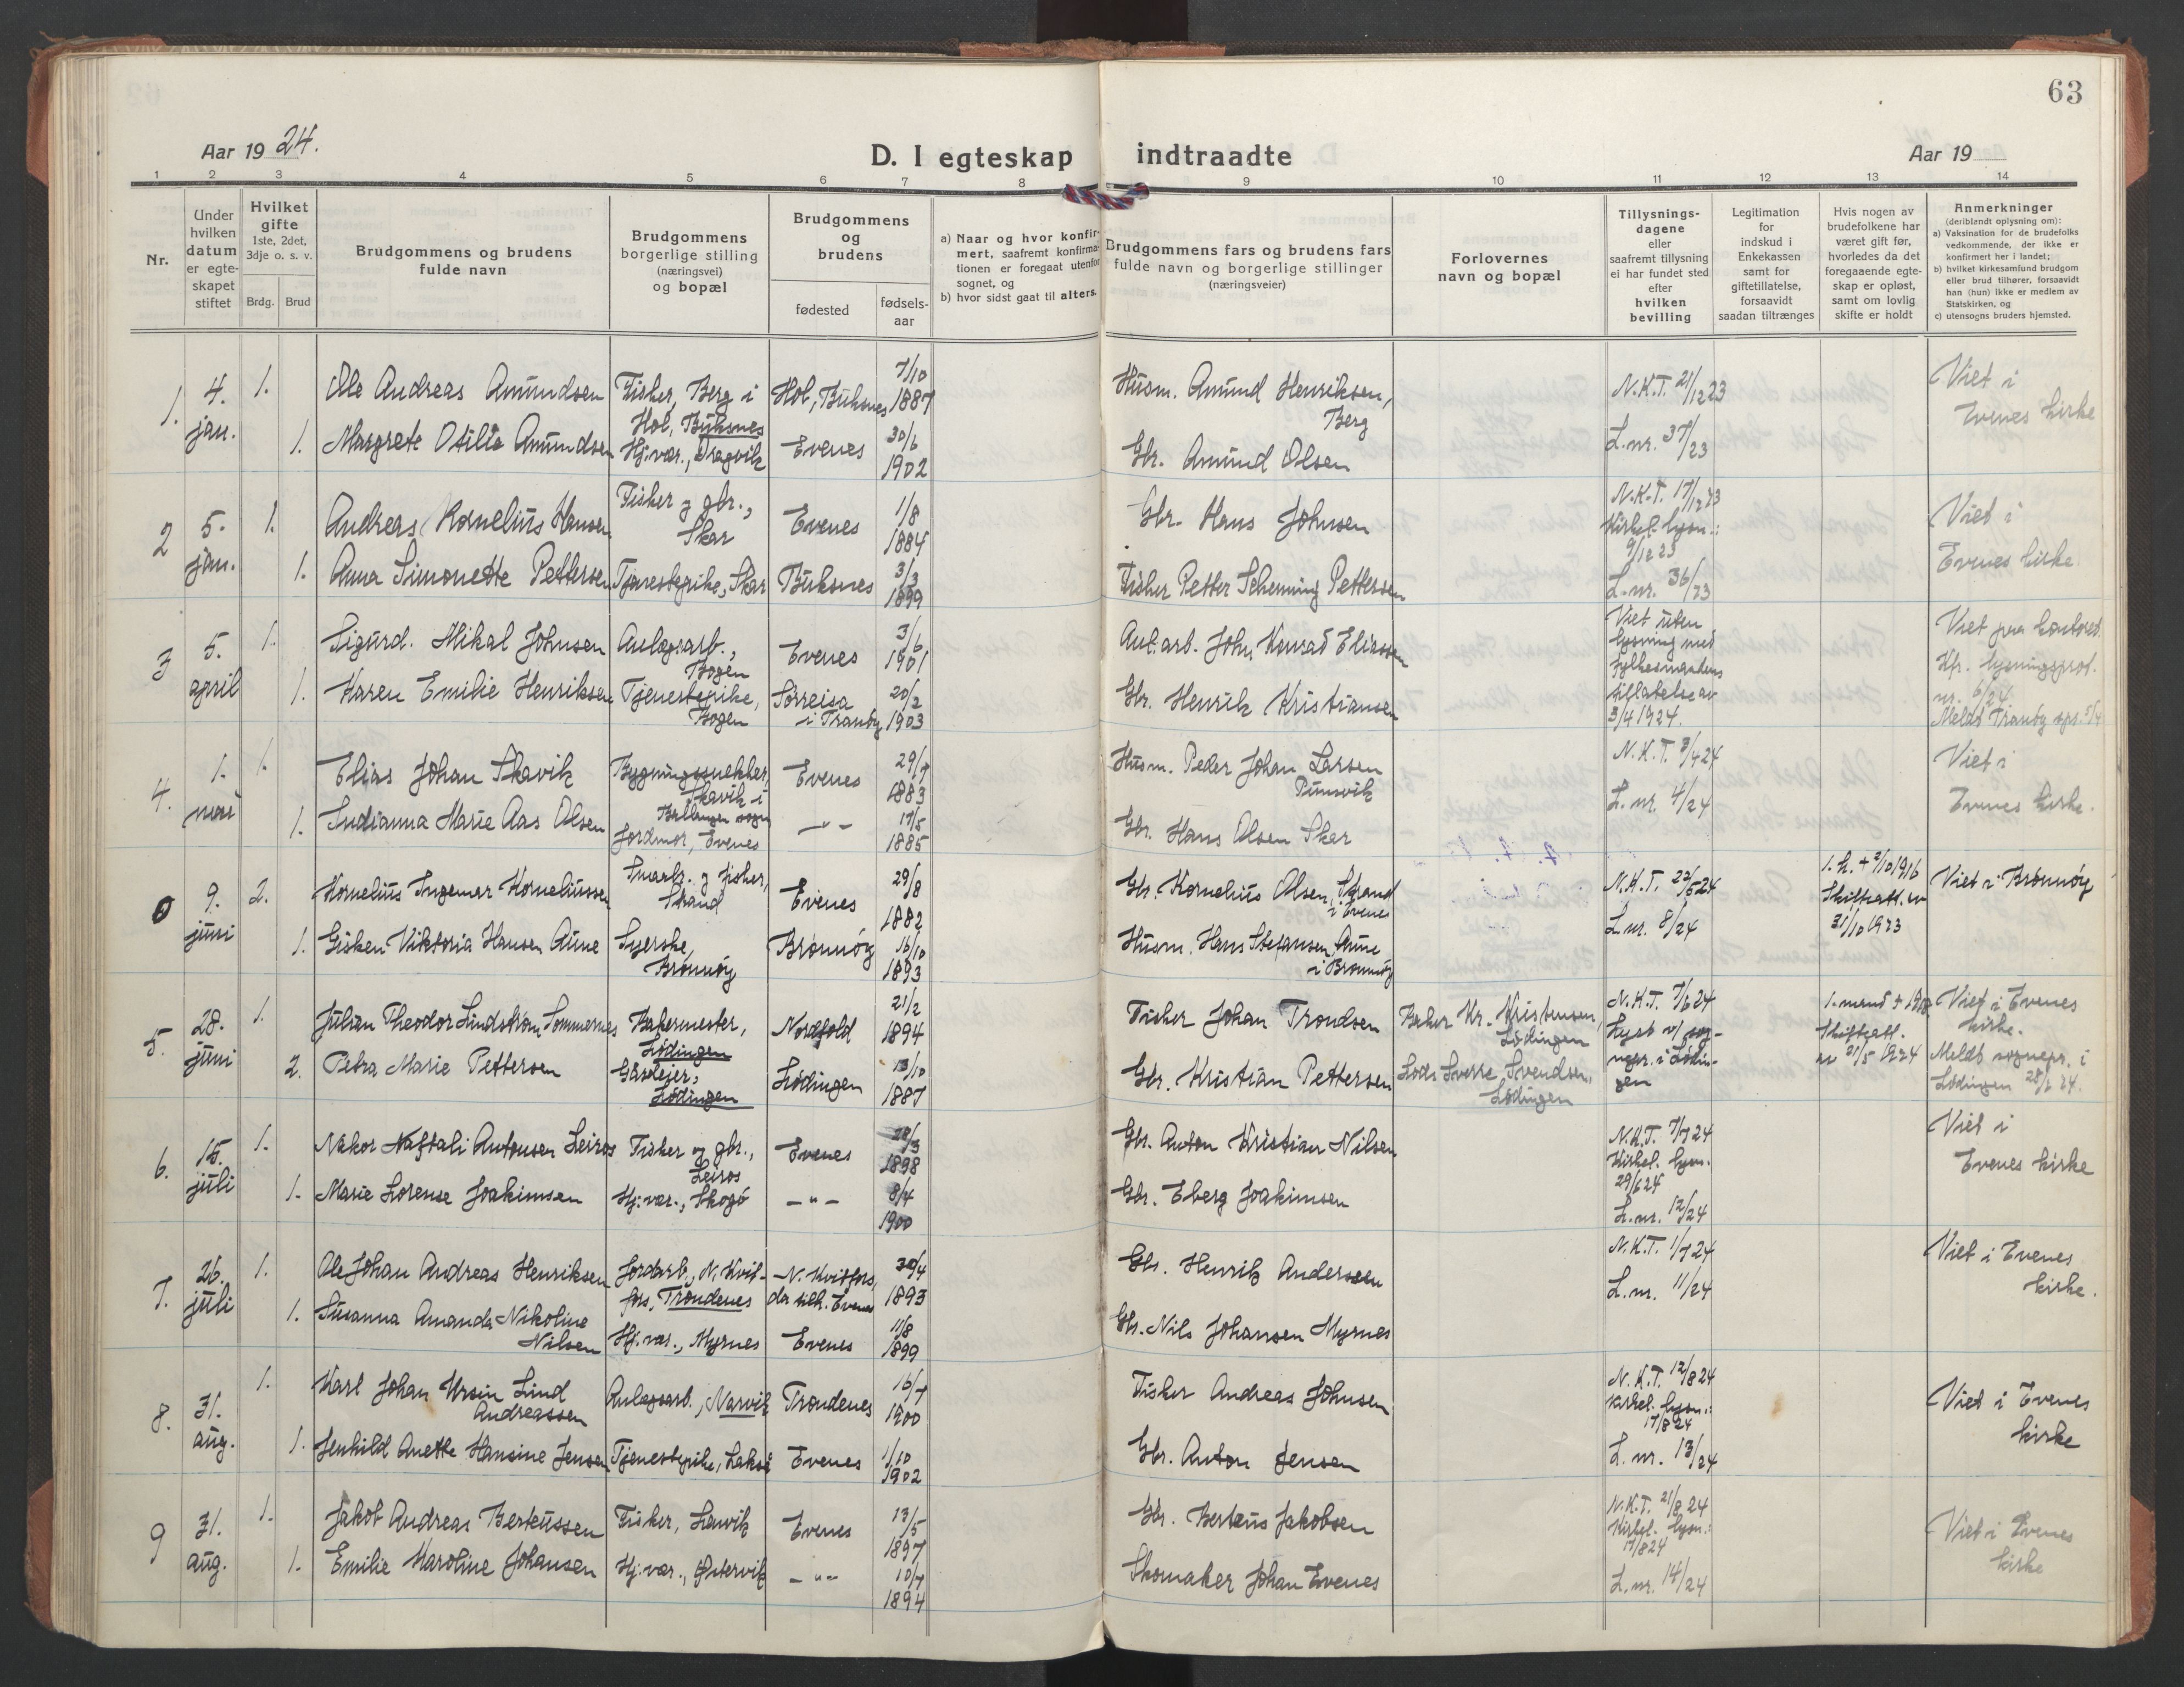 63
Aar 19 24.
D. I egteskap indtraadte
Aar 19
1 2 3 4 5 6 7 8 9 10 11 12 13 14
Nr.
Under hvilken datum er egte-skapet stiftet
Hvilket gifte 1ste, 2det, 3dje o. s. v.
Brdg. Brud
Brudgommens og brudens fulde navn
Brudgommens borgerlige stilling (næringsvei) og bopæl
Brudgommens og brudens
fødested
fødsels-aar
a) Naar og hvor konfir-mert, saafremt konfirma-tionen er foregaat utenfor sognet, og
b) hvor sidst gaat til alters.
Brudgommens fars og brudens fars fulde navn og borgerlige stillinger (næringsveier)
Forlovernes navn og bopæl
Tillysnings-dagene eller saafremt tillysning ei har fundet sted efter hvilken bevilling
Legitimation for indskud i Enkekassen samt for giftetillatelse, forsaavidt saadan tiltrænges
Hvis nogen av brudefolkene har været gift før, hvorledes da det foregaaende egte-skap er opløst, samt om lovlig skifte er holdt
Anmerkninger
(deriblandt oplysning om):
a) Vaksination for de brudefolks vedkommende, der ikke er konfirmert her i landet;
b) hvilket kirkesamfund brudgom eller brud tilhører, forsaavidt han (hun) ikke er medlem av Statskirken, og
c) utensogns bruders hjemsted.
1. 4. jan. 1. Ole Andreas Amundsen Fisher, Berg i Hol, Buksnes Hol, Buksnes 7/10 1887 Husm. Amund Henriksen, Berg N.K.T. 21/12 23 Viet i Evenes kirke
1. Margrete Otilie Amundsen Hj.vær., Dragvik Evenes 30/6 1902 Gbr. Amund Olsen L.nr. 37/23
2 5. jan. 1. Andreas Kornelius Hansen Fisker og gbr., Skar Evenes 1/8 1884 Gbr. Hans Johnsen N.K.T. 17/12 23 Kirkel. lysn.: 9/12 23 Viet i Evenes kirke
1. Anna Simonette Pettersen Tjenestepike, Skar Buksnes 3/3 1899 Fisker Petter Schenning Pettersen L.nr. 36/23
3 5. april 1. Sigurd. Mikal Johnsen Anlægsarb., Bogen Evenes 3/6 1901 Anl.arb. John Konrad Eliassen Viet uten lysning med fylkesmandens tillatelse av 3/4 1924. Viet paa kontoret. Kfr. lysningsprot. nr. 6/24 Meldt Tranøy spr. 5/4
1. Karen Emilie Henriksen Tjenestepike, Bogen Sørreisa i Tranøy 20/2 1903 Gbr. Henrik Kristiansen
4. 1. mai 1. Elias Johan Skavik Bygningssnekker, Skavik i Ballangen sogn Evenes 29/7 1883 Husm. Peder Johan Larsen Punsvik N.K.T. 3/4 24 Viet i Evenes kirke.
1. Indianna Marie Aas Olsen Jordmor, Evenes – " – 17/5 1885 Gbr. Hans Olsen Skar L.nr. 4/24
0 9. juni 2. Kornelius Ingemar Korneliussen Smaabr. og fisker, Strand Evenes 29/8 1882 Gbr. Kornelius Olsen, Strand i Evenes N.K.T. 22/5 24 1. h. + 2/10 1916 Skifteatt. av 31/10 1923 Viet i Brønnøy
1. Gisken Viktoria Hansen Aune Syerske, Brønnøy Brønnøy 16/10 1893 Husm. Hans Stefansen, Aune i Brønnøy L.nr. 8/24
5. 28. juni 1. Julian Theodor Lindstrøm Sommernes Bakermester, Lødingen Nordfold 21/2 1894 Fisker Johan Trondsen Baker Kr. Kristensen, Lødingen N.K.T. 7/6 24 Lyst v/ sog-nepr. i Lødin-gen 1. mand + Skifteatt. av 21/5 1924 Viet i Evenes kirke. Meldt sognepr. i Lødingen 28/6 24.
2. Petra Marie Pettersen Gårdeier, Lødingen Lødingen 13/10 1887 Gbr. Kristian Pettersen Lods Sverre Svendsen, Lødingen
6. 15. juli 1. Nakor Naftali Antonsen Leiros Fisker og gbr., Leiros Evenes 28/3 1898 Gbr. Anton Kristian Nilsen N.K.T. 7/7 24 Kirkel. lysn. 29/6 24 Viet i Evenes kirke
1. Marie Lorense Joakimsen Hj.vær., Skogø – " – 8/4 1900 Gbr. Eberg Joakimsen L.nr. 12/24
7. 26. juli 1. Ole Johan Andreas Henriksen Jordarb., N. Kvit-fors, Trondenes N. Kvitfors, da tilh. Evenes 30/4 1893 Gbr. Henrik Andersen N.K.T. 1/7 24 Viet i Evenes kirke.
1. Susanna Amanda Nikoline Nilsen Hj.vær., Myrnes Evenes 11/8 1899 Gbr. Nils Johansen Myrnes L.nr. 11/24
8. 31. aug. 1. Karl Johan Ursin Lind Andreassen Anlægsarb., Narvik Trondenes 16/7 1900 Fisker Andreas Johnsen N.K.T. 12/8 24 Kirkel. lysn.: 17/8 24 Viet i Evenes kirke
1. Jenhild Anette Hansine Jensen Tjenestepike, Lakså Evenes 1/10 1902 Gbr. Anton Jensen L.nr. 13/24
9 31. aug. 1. Jakob Andreas Berteussen Fisker, Lenvik Evenes 13/5 1897 Gbr. Berteus Jakobsen N.K.T. 21/8 24 Kirkel. lysn.: 17/8 24 Viet i Evenes kirke
1. Emilie Karoline Johansen Hj.vær., Østervik – " – 10/7 1894 Skomaker Johan Evenes L.nr. 14/24